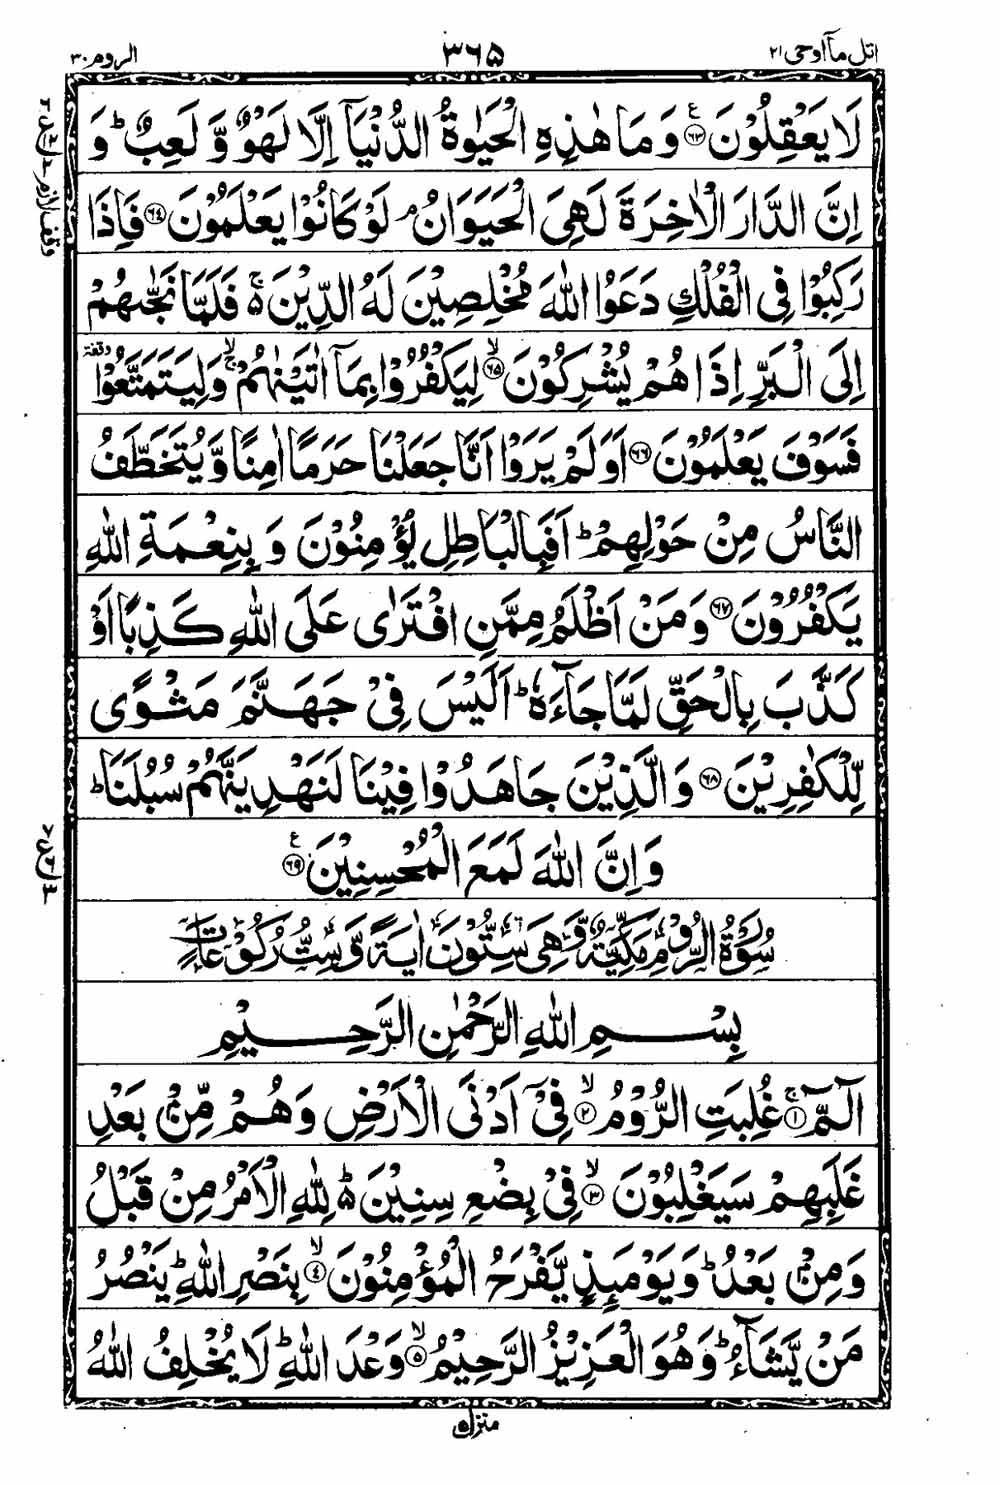 اتل مآ اوحی ۲۱
۳۶۵
الروم ۳۰
لَا يَعْقِلُوْنَ ۟ۧ﴿۶۳﴾ وَمَا هٰذِهِ الْحَيٰوةُ الدُّنْيَاۤ اِلَّا لَهْوٌ وَّ لَعِبٌ ؕ وَ
اِنَّ الدَّارَ الْاٰخِرَةَ لَهِىَ الْحَيَوَانُ ۘ لَوْ كَانُوْا يَعْلَمُوْنَ ﴿۶۴﴾ فَاِذَا
رَكِبُوْا فِى الْفُلْكِ دَعَوُا اللّٰهَ مُخْلِصِيْنَ لَهُ الدِّيْنَ ۚ۬ فَلَمَّا نَجّٰٮهُمْ
اِلَى الْبَرِّ اِذَا هُمْ يُشْرِكُوْنَ ۙ﴿۶۵﴾ لِيَكْفُرُوْا بِمَاۤ اٰتَيْنٰهُمْ ۙۚ وَلِيَتَمَتَّعُوْا وقفة
فَسَوْفَ يَعْلَمُوْنَ ﴿۶۶﴾ اَوَلَمْ يَرَوْا اَنَّا جَعَلْنَا حَرَمًا اٰمِنًا وَّيُتَخَطَّفُ
النَّاسُ مِنْ حَوْلِهِمْ ؕ اَفَبِالْبَاطِلِ يُؤْمِنُوْنَ وَ بِنِعْمَةِ اللّٰهِ
يَكْفُرُوْنَ ﴿۶۷﴾ وَمَنْ اَظْلَمُ مِمَّنِ افْتَرٰى عَلَى اللّٰهِ كَذِبًا اَوْ
كَذَّبَ بِالْحَقِّ لَمَّا جَآءَهٗ ؕ اَلَيْسَ فِىْ جَهَنَّمَ مَثْوًى
لِّلْكٰفِرِيْنَ ﴿۶۸﴾ وَالَّذِيْنَ جَاهَدُوْا فِيْنَا لَنَهْدِيَنَّهُمْ سُبُلَنَا ؕ
وَاِنَّ اللّٰهَ لَمَعَ الْمُحْسِنِيْنَ ۟ۧ﴿۶۹﴾
سُوْرَةُ الرُّوْمِ مَكِّيَّةٌ وَّهِىَ سِتُّوْنَ اٰيَةً وَّسِتُّ رُكُوْعَاتٍ
بِسْمِ اللّٰهِ الرَّحْمٰنِ الرَّحِيْمِ
الٓمّٓ ۚ﴿۱﴾ غُلِبَتِ الرُّوْمُ ۙ﴿۲﴾ فِىْۤ اَدْنَى الْاَرْضِ وَهُمْ مِّنْۢ بَعْدِ
غَلَبِهِمْ سَيَغْلِبُوْنَ ۙ﴿۳﴾ فِىْ بِضْعِ سِنِيْنَ ؕ۬ لِلّٰهِ الْاَمْرُ مِنْ قَبْلُ
وَمِنْۢ بَعْدُ ؕ وَيَوْمَئِذٍ يَّفْرَحُ الْمُؤْمِنُوْنَ ۙ﴿۴﴾ بِنَصْرِ اللّٰهِ ؕ يَنْصُرُ
مَنْ يَّشَآءُ ؕ وَهُوَ الْعَزِيْزُ الرَّحِيْمُ ۙ﴿۵﴾ وَعْدَ اللّٰهِ ؕ لَا يُخْلِفُ اللّٰهُ
وقف لازم
منزل ۵